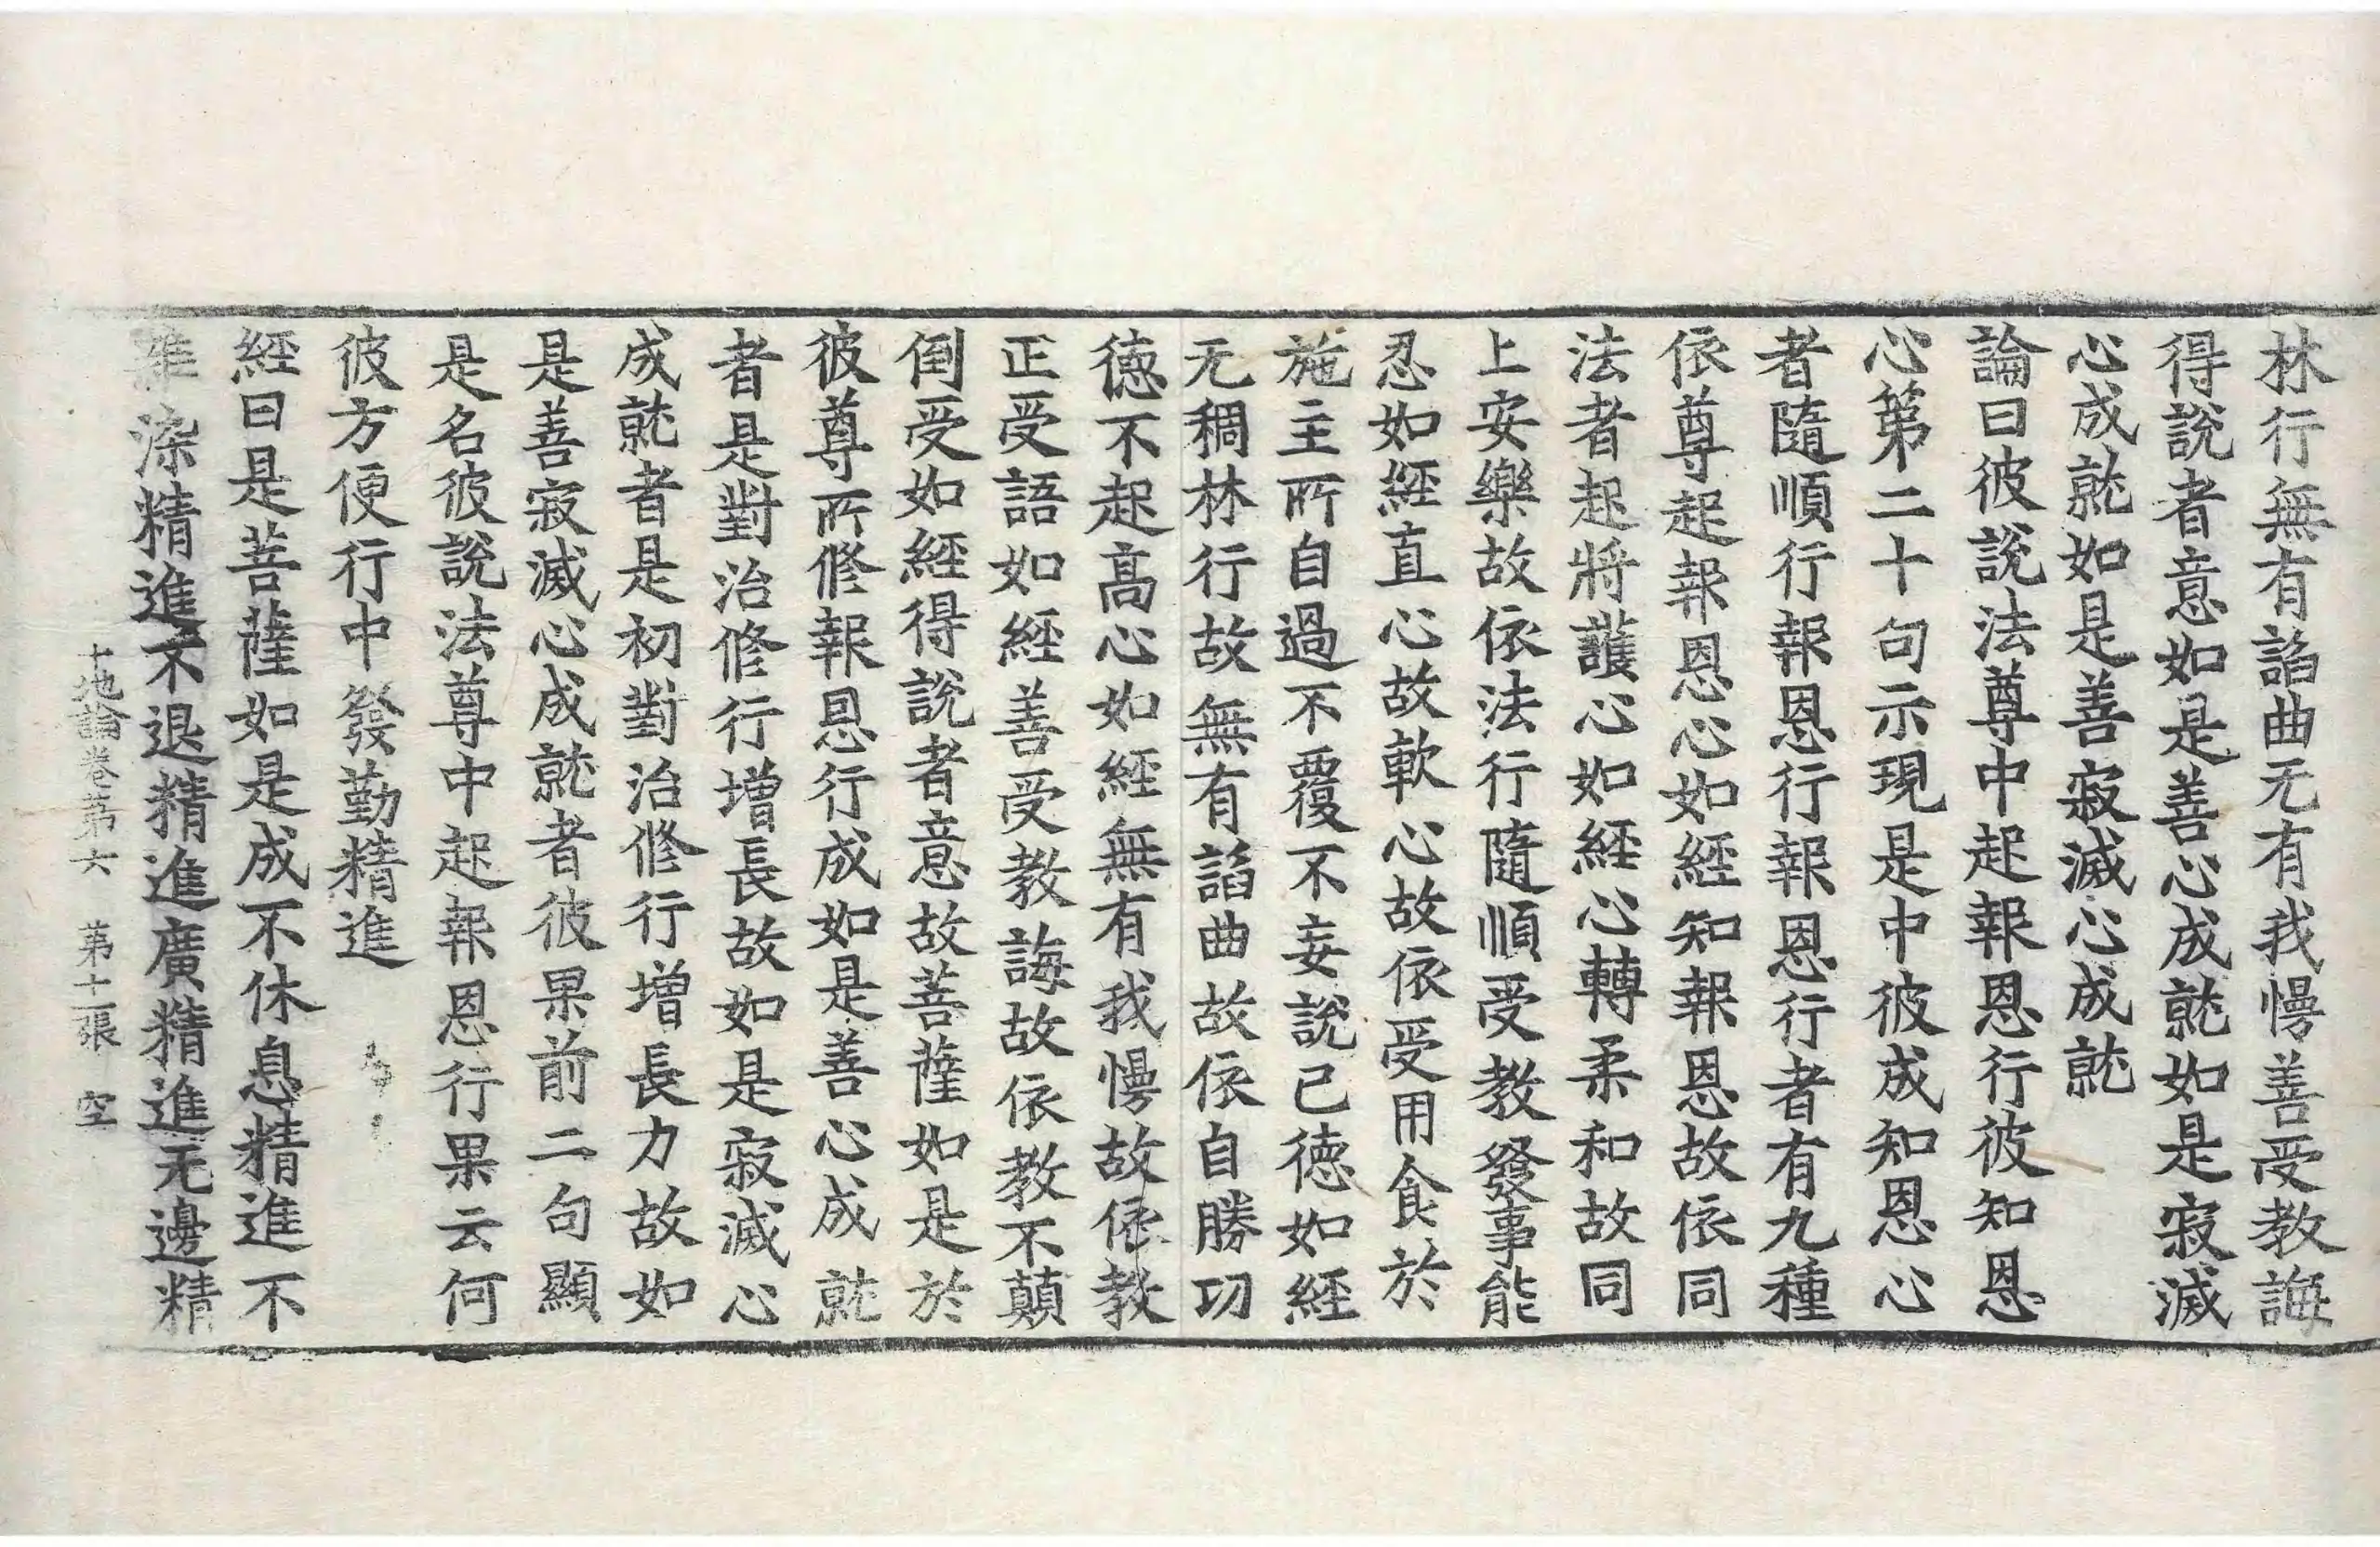 林行無有諂曲无有我慢善受教誨
得說者意如是善心成就如是寂滅
心成就如是善寂滅心成就
論曰彼說法尊中起報恩行彼知恩
心第二十句示現是中彼成知恩心
者隨順行報恩行報恩行者有九種
依尊起報恩心如經知報恩故依同
法者起將護心如經心轉柔和故同
上安樂故依法行隨順受教發事能
忍如經直心故軟心故依受用食於
施主所自過不覆不妄說己德如經
无稠林行故無有諂曲故依自勝功
德不起高心如經無有我慢故依教
正受語如經善受教誨故依教不顛
倒受如經得說者意故菩薩如是於
彼尊所修報恩行成如是善心成就
者是對治修行增長故如是寂滅心
成就者是初對治修行增長力故如
是善寂滅心成就者彼果前二句顯
是名彼說法尊中起報恩行果云何
彼方便行中發勤精進
經曰是菩薩如是成不休息精進不
雜染精進不退精進廣精進无邊精
十地論卷第六 第十二張 空